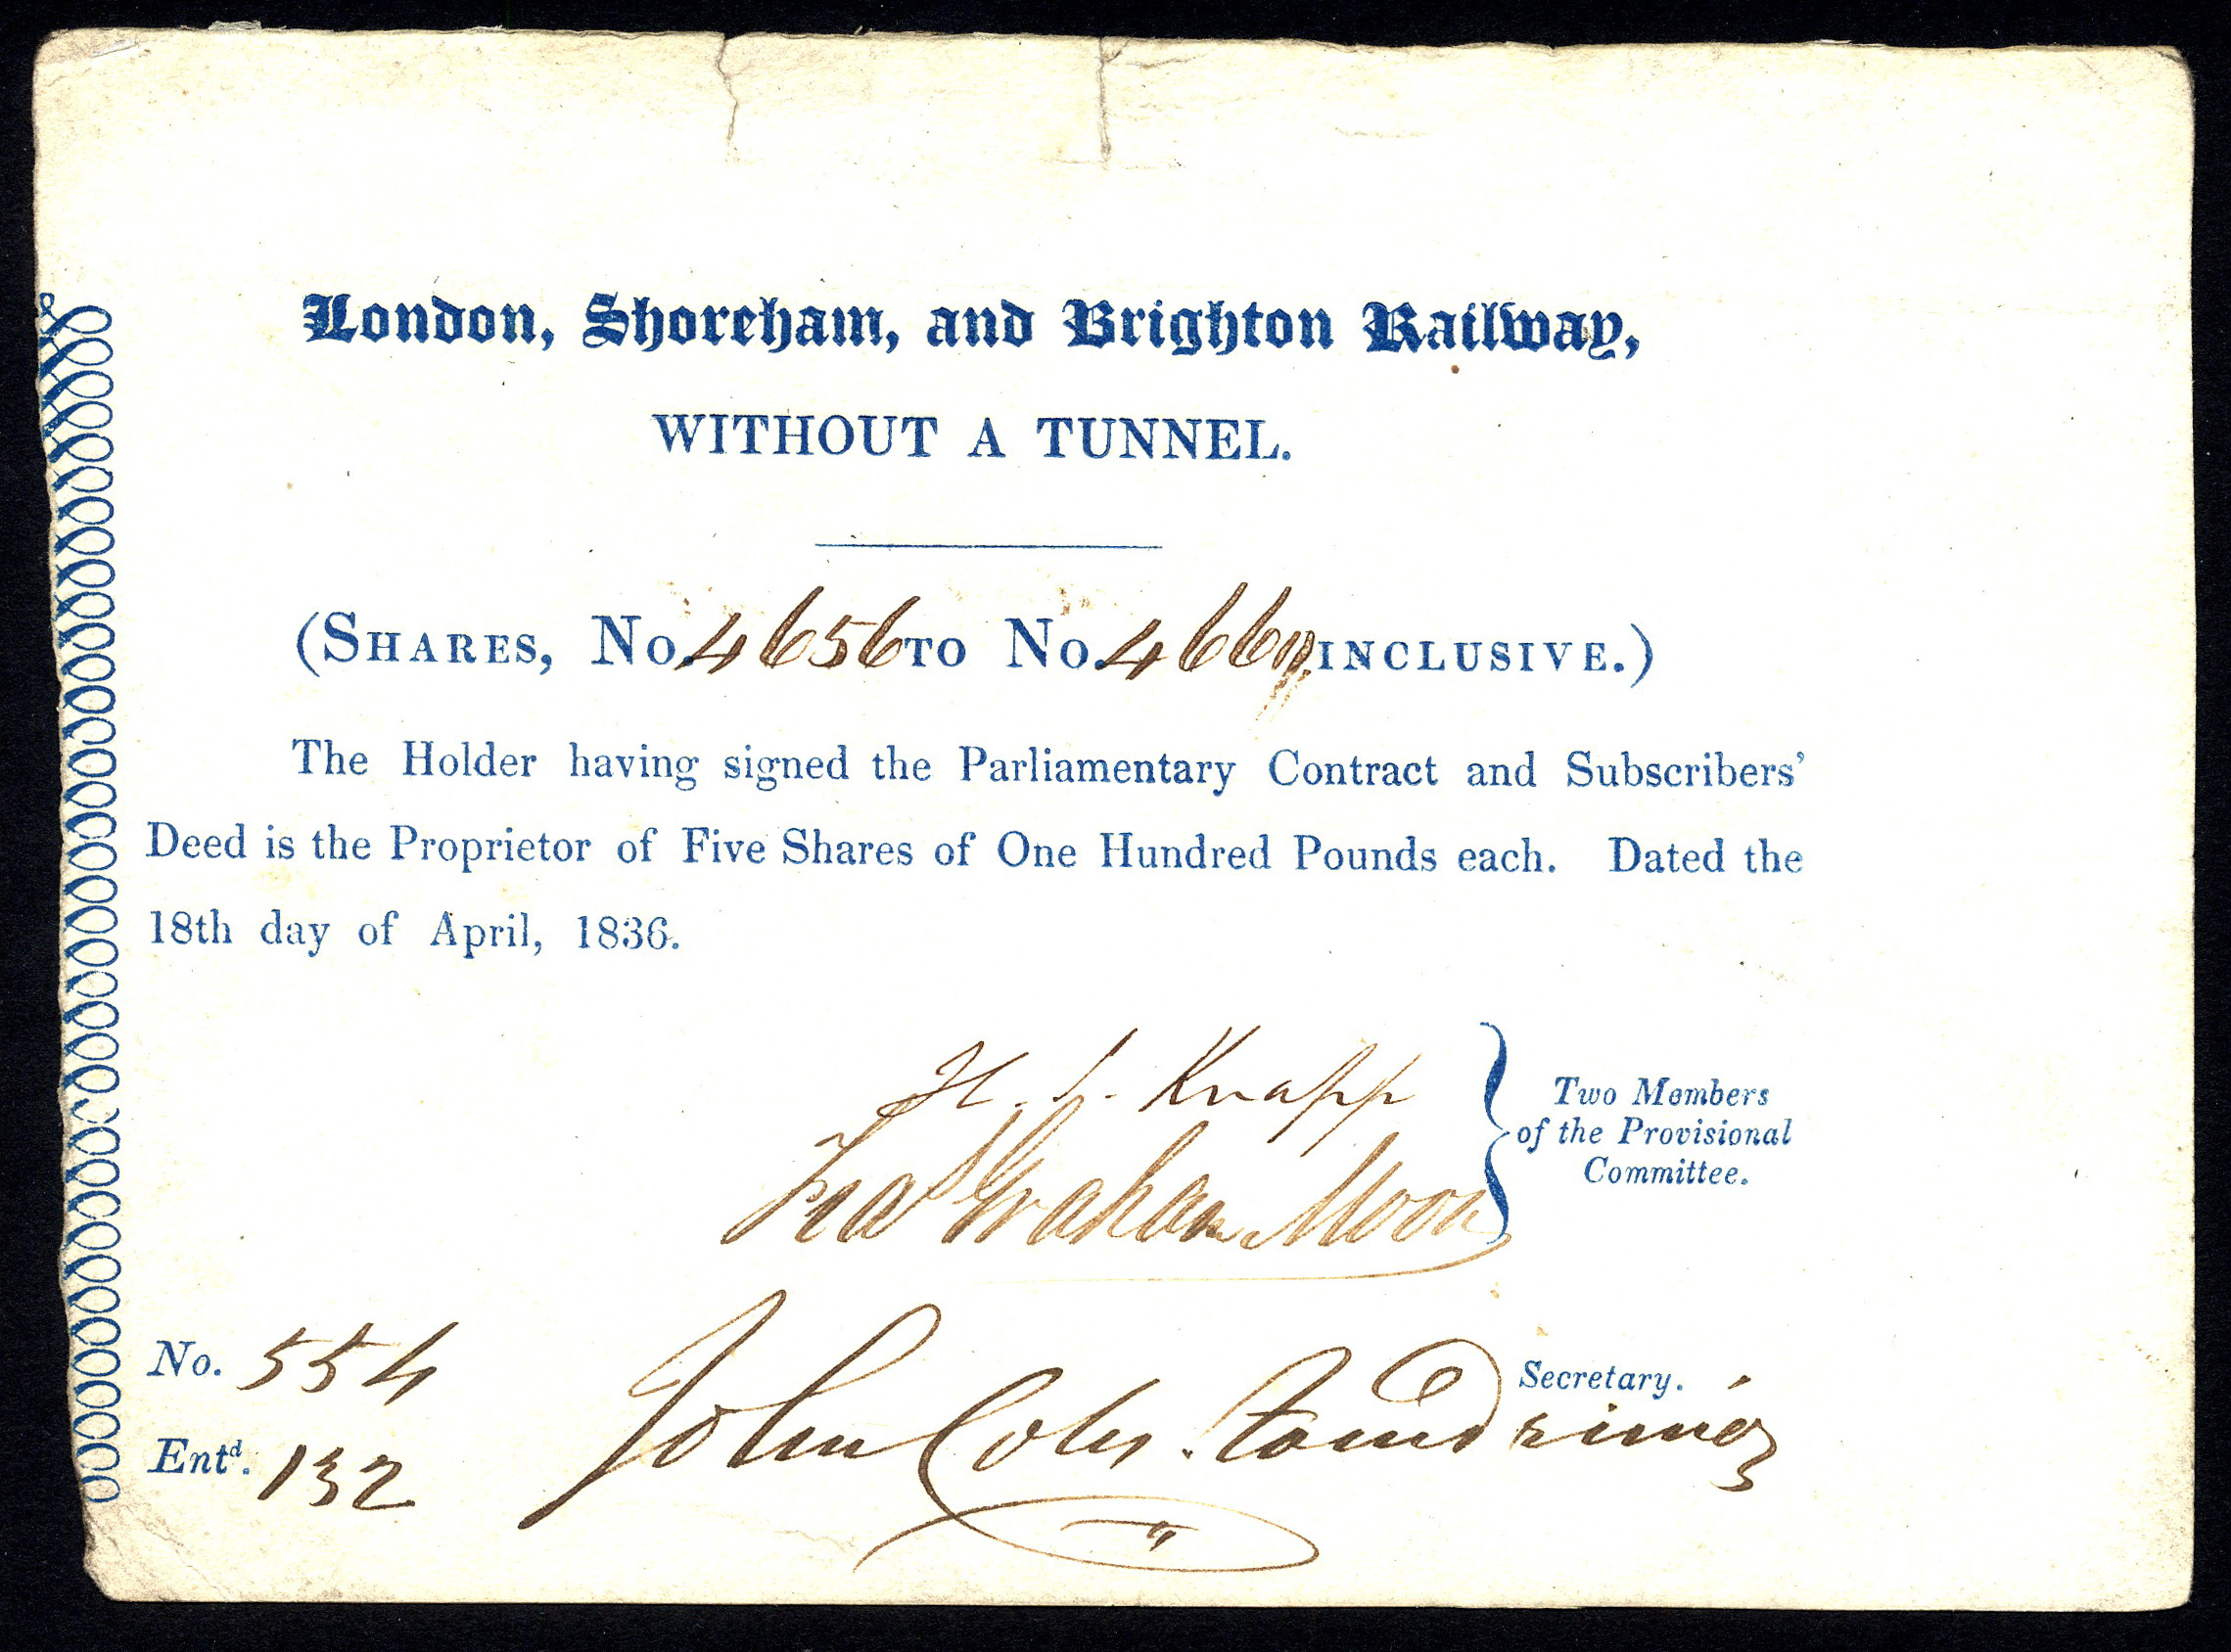 London, Shoreham, and Brighton Railway,
WITHOUT A TUNNEL.
(SHARES, No. 4656 TO No. 4660 INCLUSIVE.)
The Holder having signed the Parliamentary Contract and Subscribers'
Deed is the Proprietor of Five Shares of One Hundred Pounds each. Dated the
18th day of April, 1836.
H. L. Knapp
Fra^s Graham Moon
Two Members
of the Provisional
Committee.
No. 554
Secretary.
John Coles
Ent^d. 132